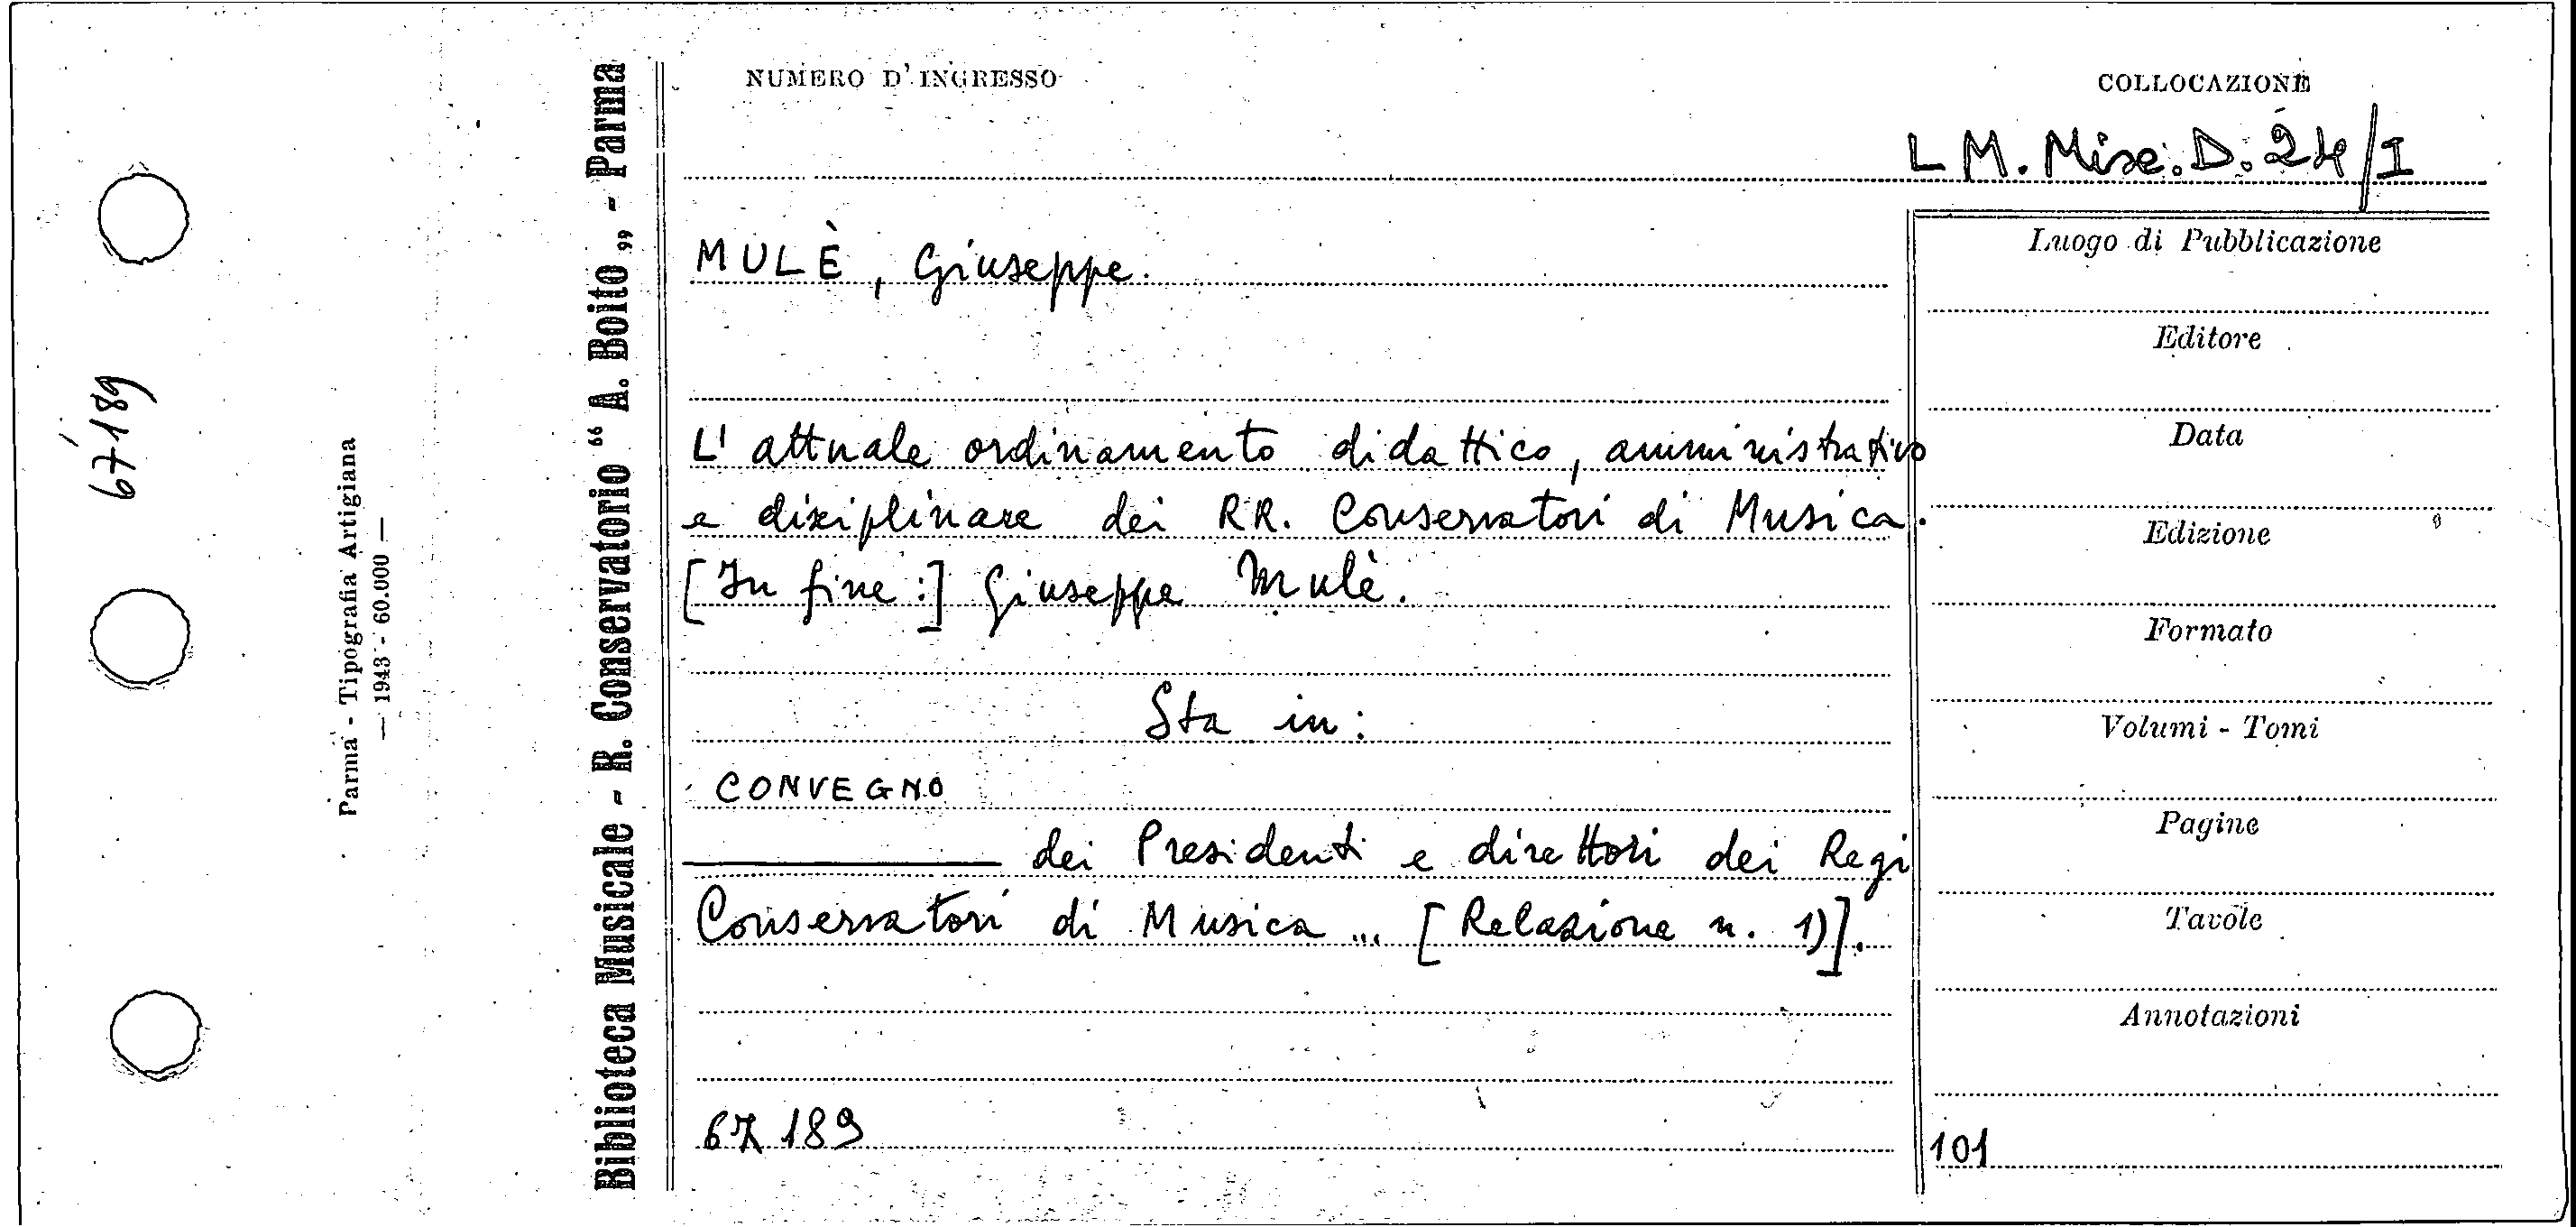 67189
Parma - Tipografia Artigiana
— 1943 - 60.000 —
Biblioteca Musicale - R. Conservatorio “ A. Boito „ - Parma
NUMERO D'INGRESSO
COLLOCAZIONE
L M. Misc. D. 24/I
MULÈ, Giuseppe.
L' attuale ordinamento didattico, amministrativo
e disciplinare dei RR. Conservatori di Musica.
[In fine:] Giuseppe Mulè.
Sta in:
CONVEGNO
——— dei Presidenti e direttori dei Regi
Conservatori di Musica ... [Relazione n. 1)].
67189
Luogo di Pubblicazione
Editore
Data
Edizione
Formato
Volumi - Tomi
Pagine
Tavole
Annotazioni
101